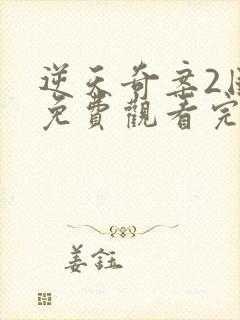 逆天奇案2國
免費觀看完
姜鈺